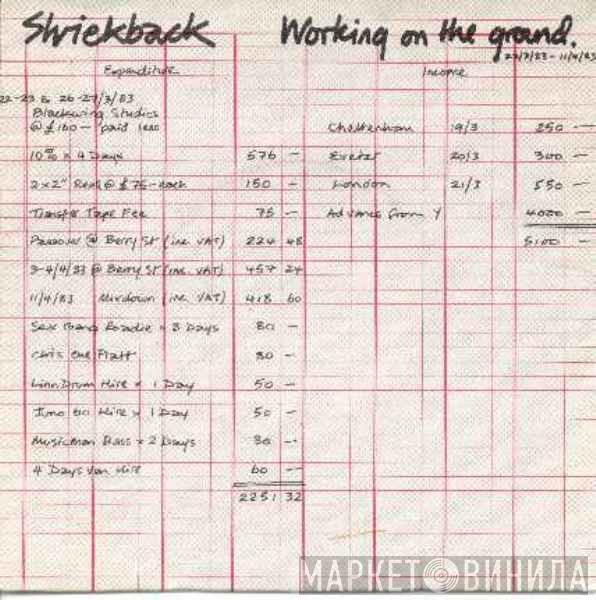 Shriekback Working on the ground.
22/3/83 - 11/4/83
Expenditure Income
22-23 & 26-27/3/83
Blackwing Studios
@ £160 — paid less Cheltenham 19/3 250 —
10% x 4 Days 576 — Exeter 20/3 300 —
2 x 2" Reel @ £75 — each 150 — London 21/3 550 —
Transfer Tape Fee 75 — Advance from Y 4000 —
@ Berry St (inc VAT) 224 48 5100 —
3-4/4/83 @ Berry St (inc. VAT) 457 24
11/4/83 Mixdown (inc VAT) 418 60
Roadie x 3 Days 80 —
30 —
Linn Drum Hire x 1 Day 50 —
Juno 60 Hire x 1 Day 50 —
Musicman Bass x 2 Days 30 —
4 Days Van Hire 60 —
2251 32
МАРКЕТ ВИНИЛА